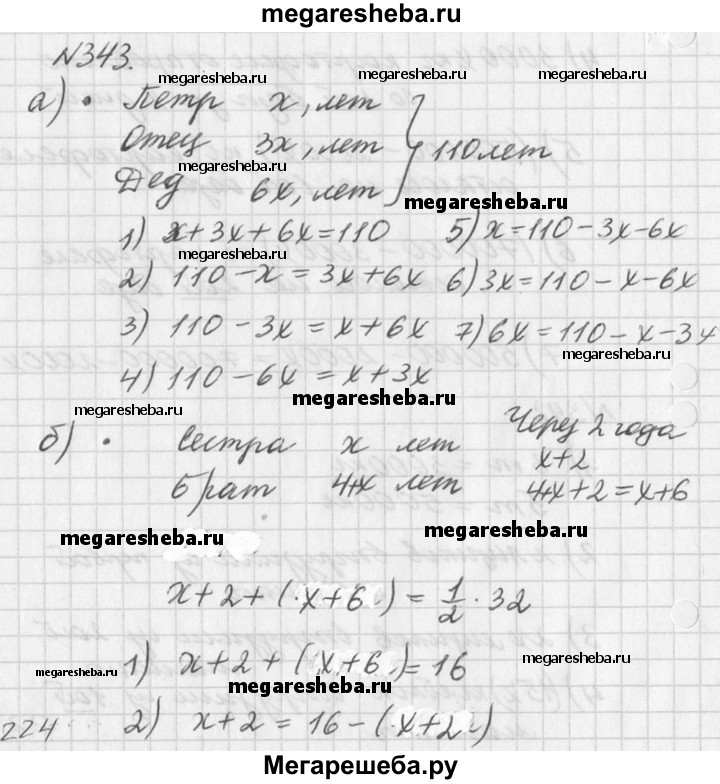 megaresheba.ru
N343.
megaresheba.ru megaresheba.ru
а) • Петр x, лет
Отец 3x, лет } 110 лет
megaresheba.ru
Дед 6x, лет
megaresheba.ru
1) x+3x+6x=110 5) x=110-3x-6x
megaresheba.ru
2) 110-x=3x+6x 6) 3x=110-x-6x
3) 110-3x=x+6x 7) 6x=110-x-3x
megaresheba.ru
4) 110-6x=x+3x
megaresheba.ru
megaresheba.ru
Через 2 года
б) • Сестра x лет x+2
Брат 4+x лет 4+x+2=x+6
megaresheba.ru megaresheba.ru
x+2+(x+6)=1/2·32
megaresheba.ru
1) x+2+(x+6)=16
megaresheba.ru
megaresheba.ru
224 2) x+2=16-(x+2)
megaresheba.ru
Мегарешеба.ру